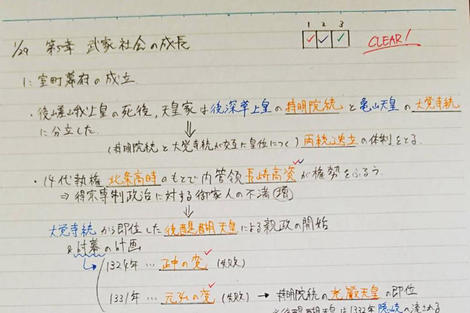 1/29 第5章 武家社会の成長
1 2 3
CLEAR!
1: 室町幕府の成立
・後嵯峨上皇の死後、天皇家は後深草上皇の持明院統と亀山天皇の大覚寺統
に分立した
(持明院統と大覚寺統が交互に皇位につく) 両統迭立の体制をとる。
・14代執権 北条高時のもとで内管領長崎高資が権勢をふるう
⇒ 得宗専制政治に対する御家人の不満
大覚寺統から即位した後醍醐天皇による親政の開始
&討幕の計画
1324年 … 正中の変 (失敗)
1331年 … 元弘の変 (失敗) → 持明院統の光厳天皇の即位
後醍醐天皇は1332年隠岐に流される